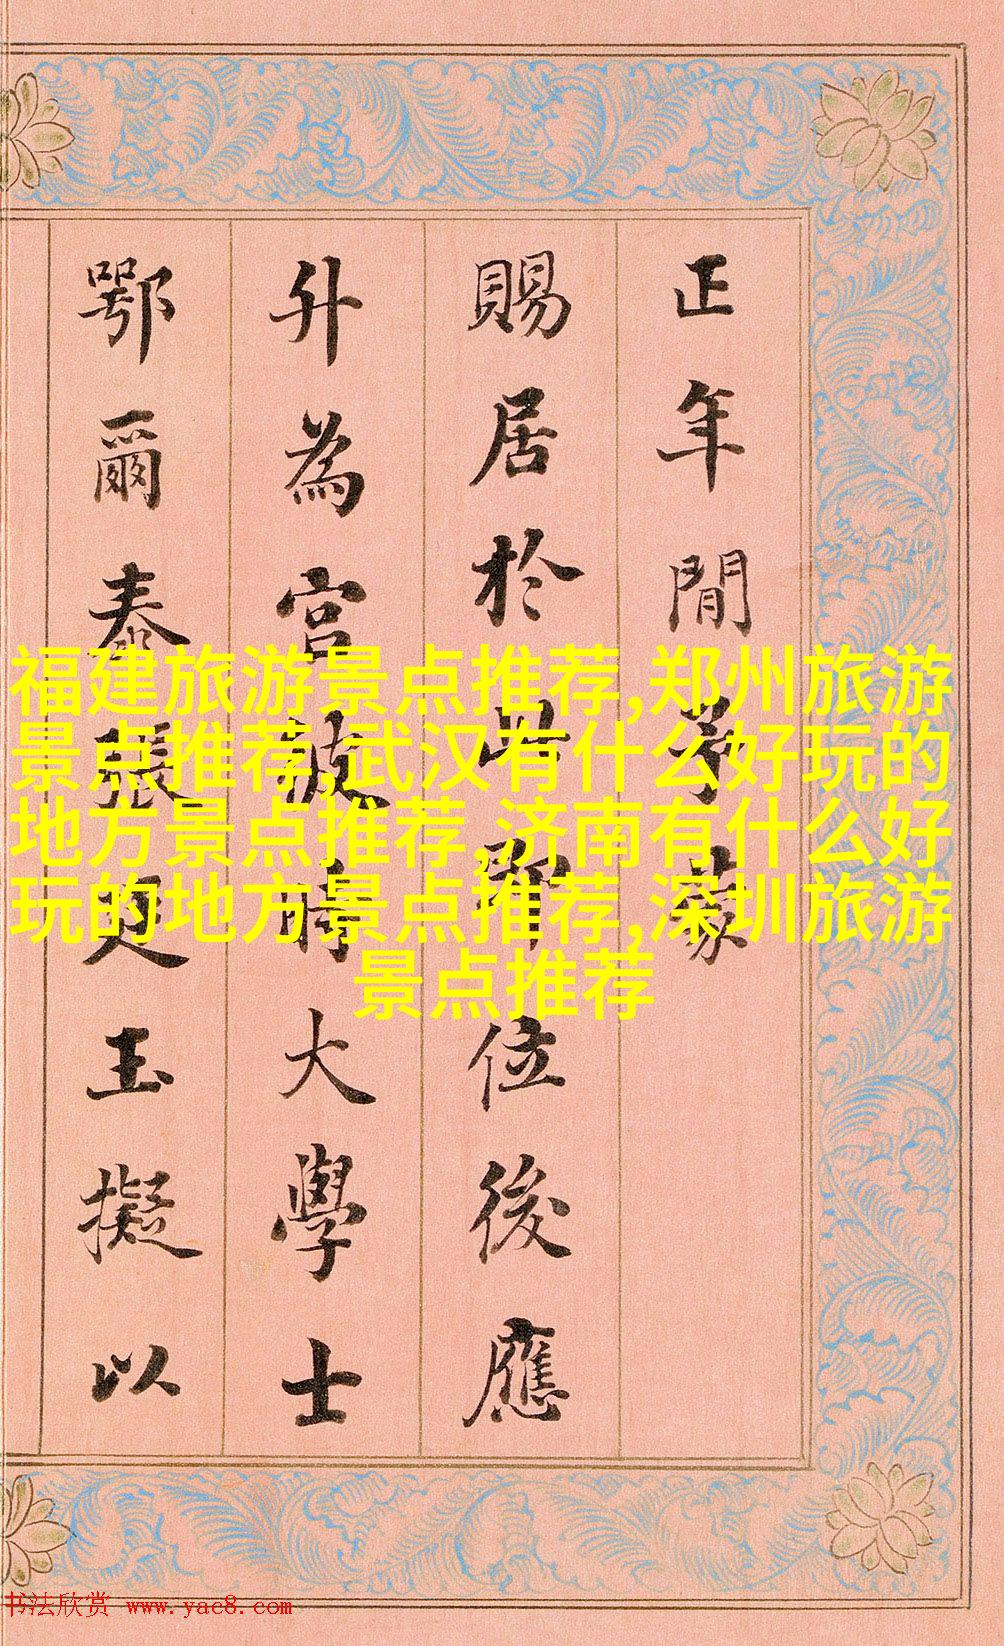 正年間予蒙
賜居於此即位後應
升為宮彼時大學士
鄂爾泰張廷玉擬以
福建旅游景点推荐,郑州旅游
景点推荐,武汉有什么好玩的
地方景点推荐,济南有什么好
玩的地方景点推荐,深圳旅游
景点推荐
书法欣赏 www.yac8.com